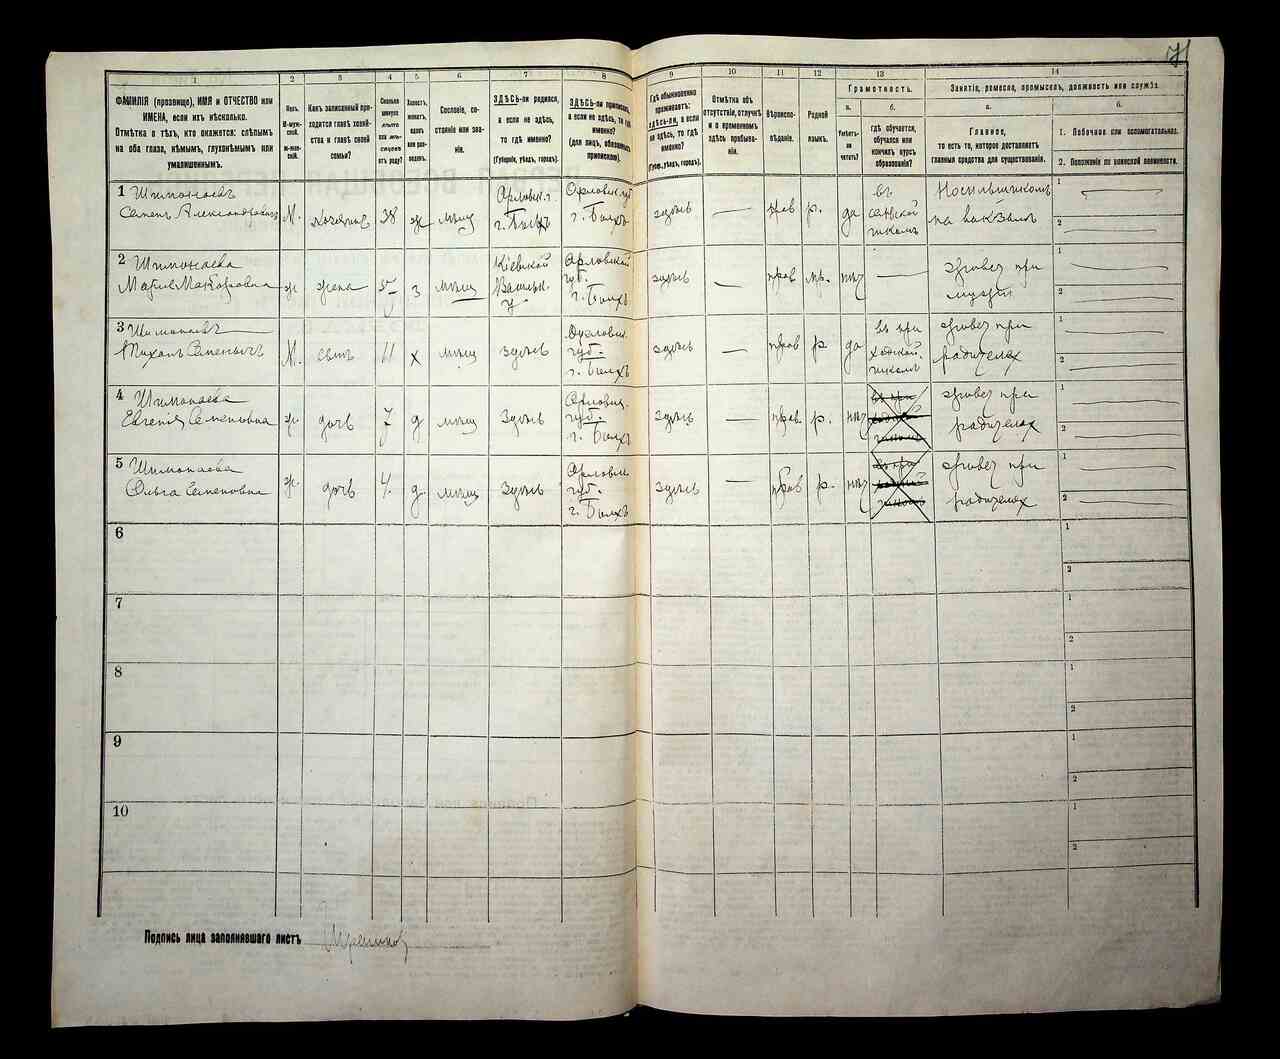 71
1
2
3
4
5
6
7
8
9
10
11
12
13
14
ФАМИЛІЯ (прозвище), ИМЯ и ОТЧЕСТВО или
ИМЕНА, если ихъ нѣсколько.
Отмѣтка о тѣхъ, кто окажется: слѣпымъ
на оба глаза, нѣмымъ, глухонѣмымъ или
умалишеннымъ.
Полъ.
М-муж-
ской.
Ж-жен-
скій.
Какъ записанный при-
ходится главѣ хозяй-
ства и главѣ своей
семьи?
Сколько
минуло
лѣтъ
или мѣ-
сяцевъ
отъ роду?
Холостъ,
женатъ,
вдовъ
или раз-
веденъ.
Сословіе, со-
стояніе или зва-
ніе.
ЗДѢСЬ-ли родился,
а если не здѣсь,
то гдѣ именно?
(Губернія, уѣздъ, городъ).
ЗДѢСЬ-ли приписанъ,
а если не здѣсь, то гдѣ
именно?
(для лицъ, обязанныхъ
припиской).
Гдѣ обыкновенно
проживаетъ:
здѣсь-ли, а если
не здѣсь, то гдѣ
именно?
(Губерн., уѣздъ, городъ).
Отмѣтка объ
отсутствіи, отлучкѣ
и о временномъ
здѣсь пребыва-
ніи.
Вѣроиспо-
вѣданіе.
Родной
языкъ.
Грамотность.
а.
Умѣетъ-
ли
читать?
б.
гдѣ обучается,
обучался или
кончилъ курсъ
образованія?
Занятіе, ремесло, промыселъ, должность или служба.
а.
Главное,
то есть то, которое доставляетъ
главныя средства для существованія.
б.
1. Побочное или вспомогательное.
2. Положеніе по воинской повинности.
1 Шимонаевъ
Семенъ Александровичъ
М.
хозяинъ
38
ж
мѣщ
Орловск. г.
г. Болхъ
Орловск. губ
г. Болхъ
здѣсь
прав
р.
да
въ
сельской
школѣ
Носильщикомъ
на вокзалѣ
1
2
2 Шимонаева
Макаровна
ж
жена
3
мѣщ
Кіевской
Васильк.
у
Орловской
губ.
г. Болхъ
здѣсь
прав
нѣт
живет при
мужѣ
1
2
3 Шимонаевъ
Михаилъ Семенычъ
М.
сынъ
11
х
мѣщ
здѣсь
Орловск.
губ.
г. Болхъ
здѣсь
прав
р
да
въ при
ходской
школѣ
живет при
родителях
1
2
4 Шимонаева
Евгенія Семеновна
ж
дочь
7
д
мѣщ
Здѣсь
Орловск.
губ.
г. Болхъ
Здѣсь
прав.
р.
нѣт
въ при
ходской
школѣ
живет при
родителях
1
2
5 Шимонаева
Ольга Семеновна
ж.
дочь
4.
д.
мѣщ
Здѣсь
Орловск.
губ.
г. Болхъ
Здѣсь
прав
р.
нѣт
въ при
ходской
школѣ
живет при
родителях
1
2
6
1
2
7
1
2
8
1
2
9
1
2
10
1
2
Подпись лица заполнявшаго листъ